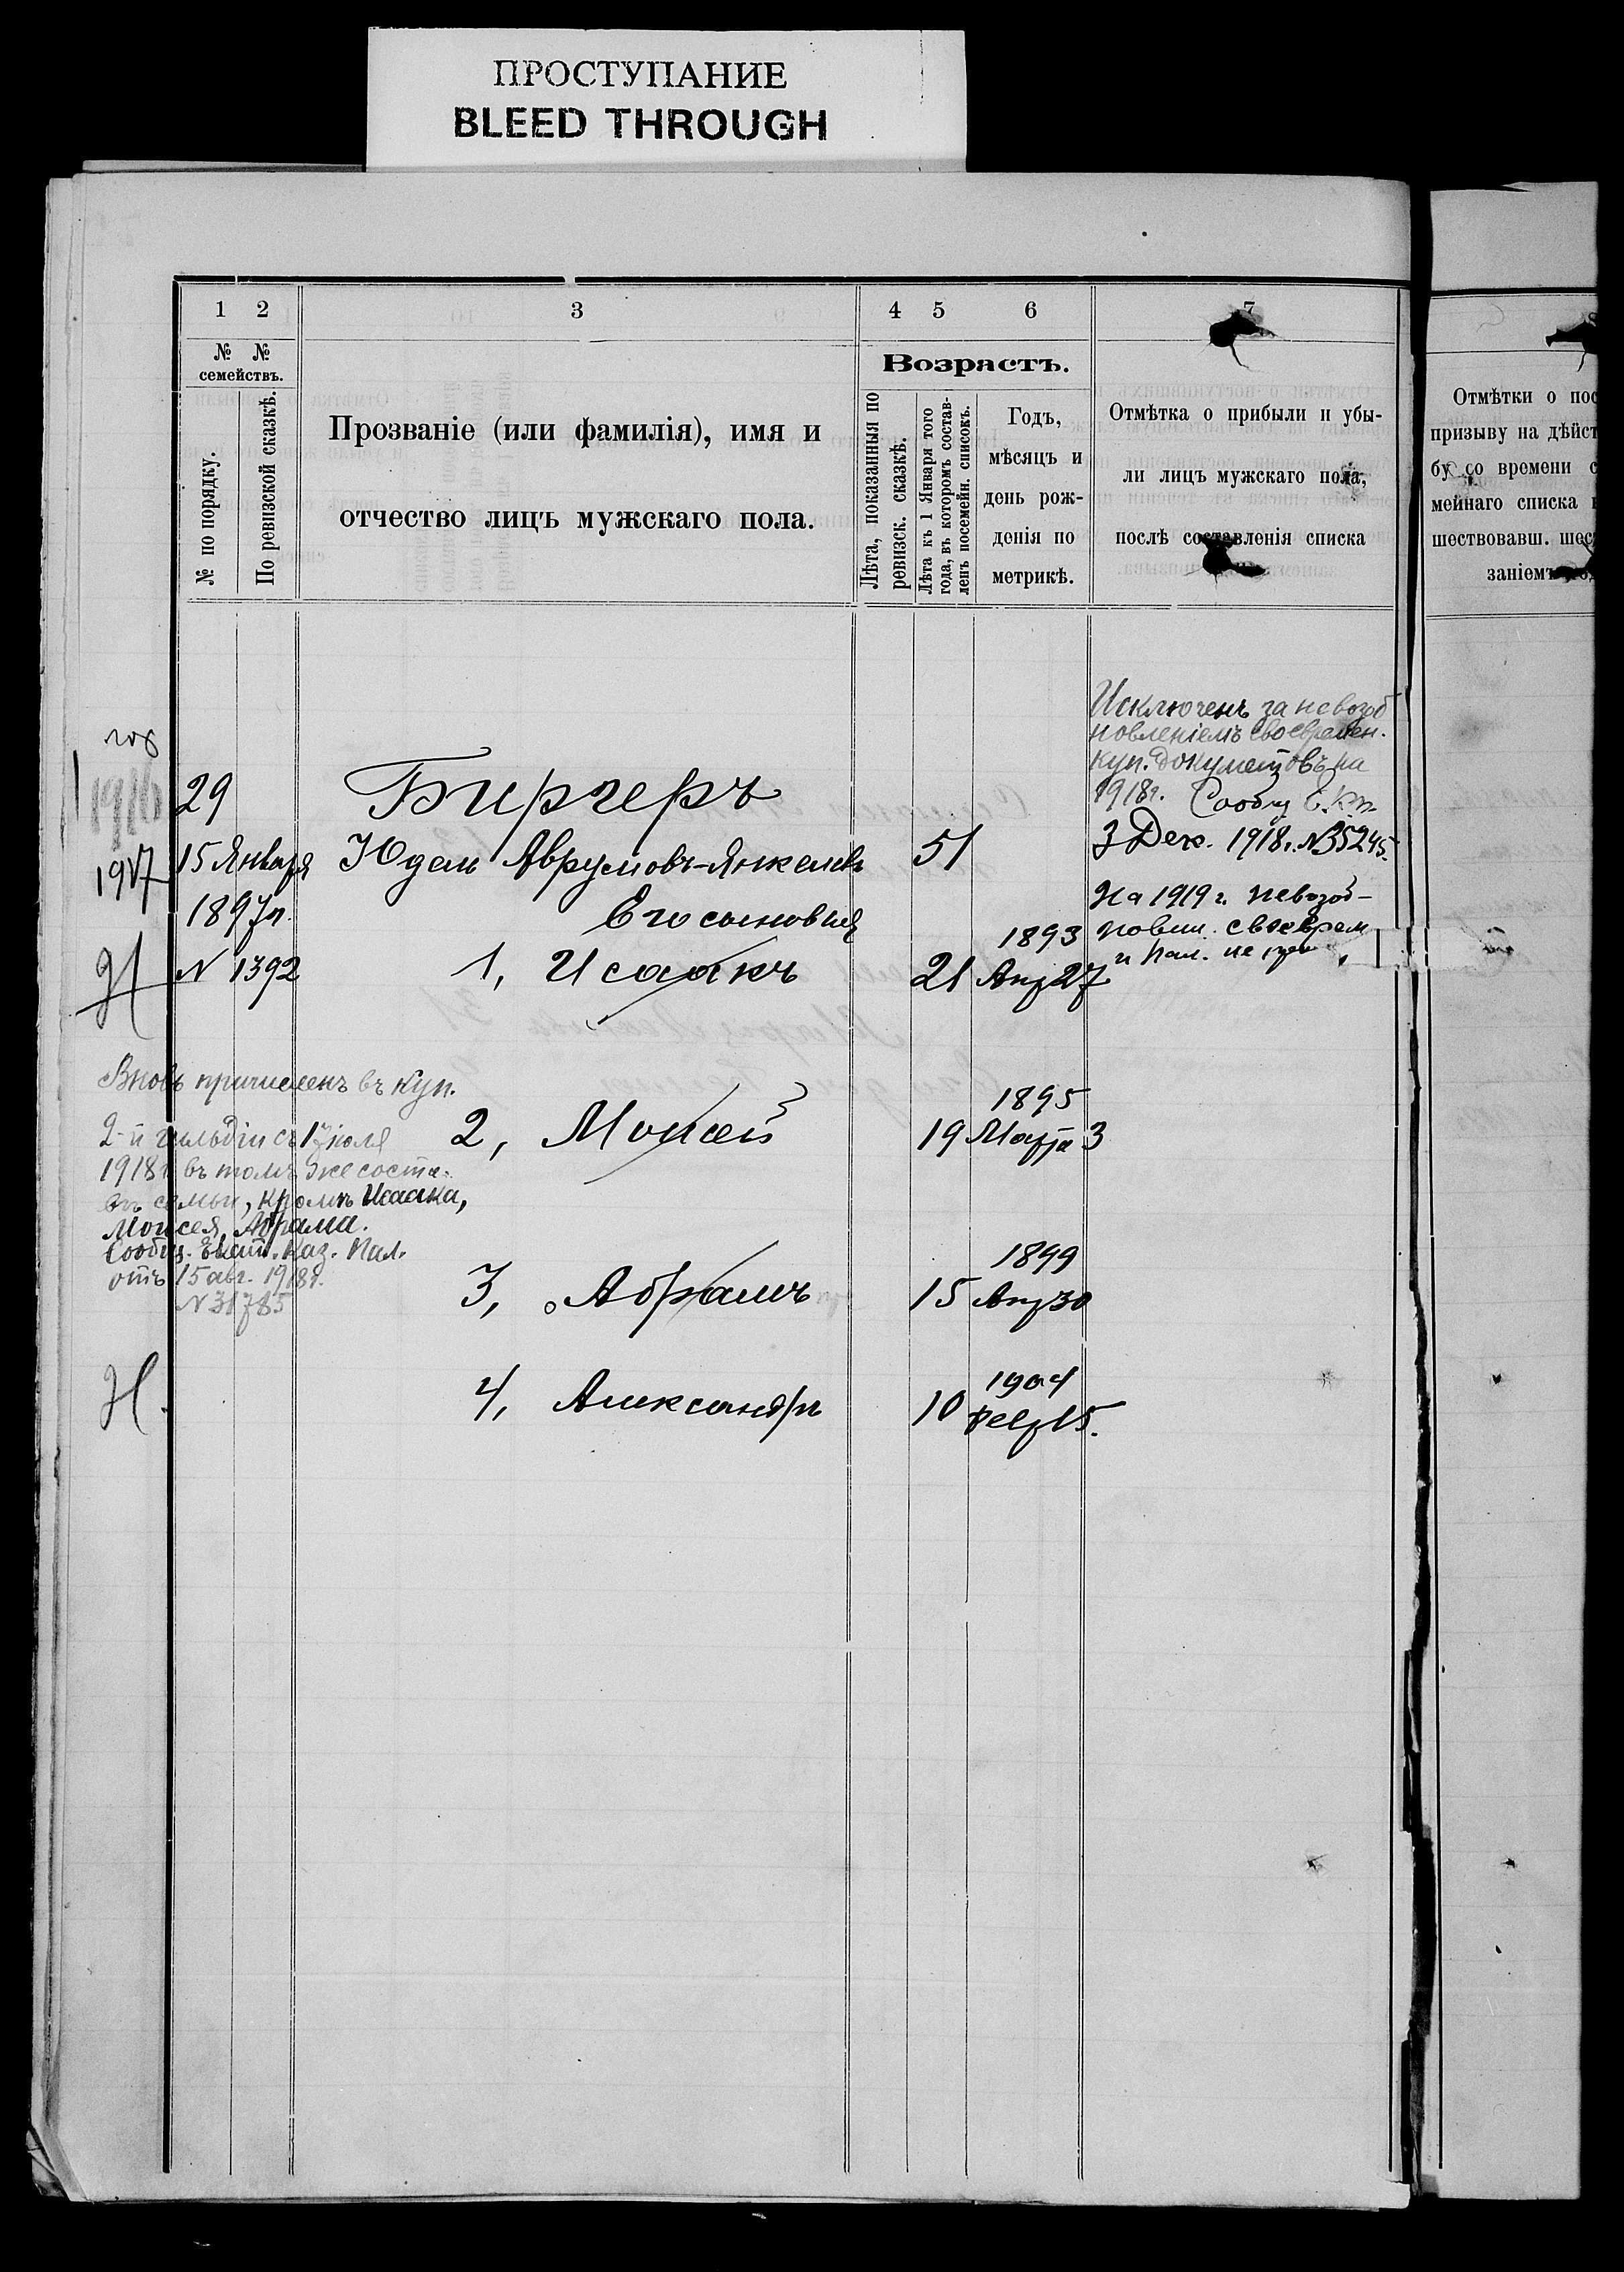 ПРОСТУПАНИЕ
BLEED THROUGH
1 2 3 4 5 6 7
№ №
семействъ.
№ по порядку.
По ревизской сказкѣ.
Прозваніе (или фамилія), имя и
отчество лицъ мужскаго пола.
Возрастъ.
Лѣта, показанныя по
ревизск. сказкѣ.
Лѣта къ 1 Января того
года, въ которомъ состав-
ленъ посемейн. списокъ.
Годъ,
мѣсяцъ и
день рож-
денія по
метрикѣ.
Отмѣтка о прибыли и убы-
ли лицъ мужскаго пола,
послѣ составленія списка
Отмѣтки о пос
призыву на дѣйст
бу со времени с
мейнаго списка
шествовавш. шес
заніемъ
Исключенъ за невозоб
новленіемъ своевремен.
куп. документовъ на
1918г. Сообщ. Е.К.П.
3 Дек. 1918г. №35245.
На 1919 г. невозоб-
новил. своеврем
и пал. не
1916
1917
29
Биргеръ
15 Января
1897г.
N 1392
Юдель Аврумовъ-Янкелевъ
51
Его сыновья
1, Исаакъ
21
1893
Апр 27
Вновь причисленъ въ куп.
2-й гильдіи съ 17 іюля
1918г. въ томъ же соста-
вѣ семьи, кромѣ Исаака,
Моисея, Абрама.
Сообщ. Екат. Каз. Пал.
отъ 15 авг. 1918г.
N 31785
2, Моисей
19
1895
Марта 3
3, Абрамъ
15
1899
Апр 30
Н.
4, Александръ
10
1904
Февр 15.